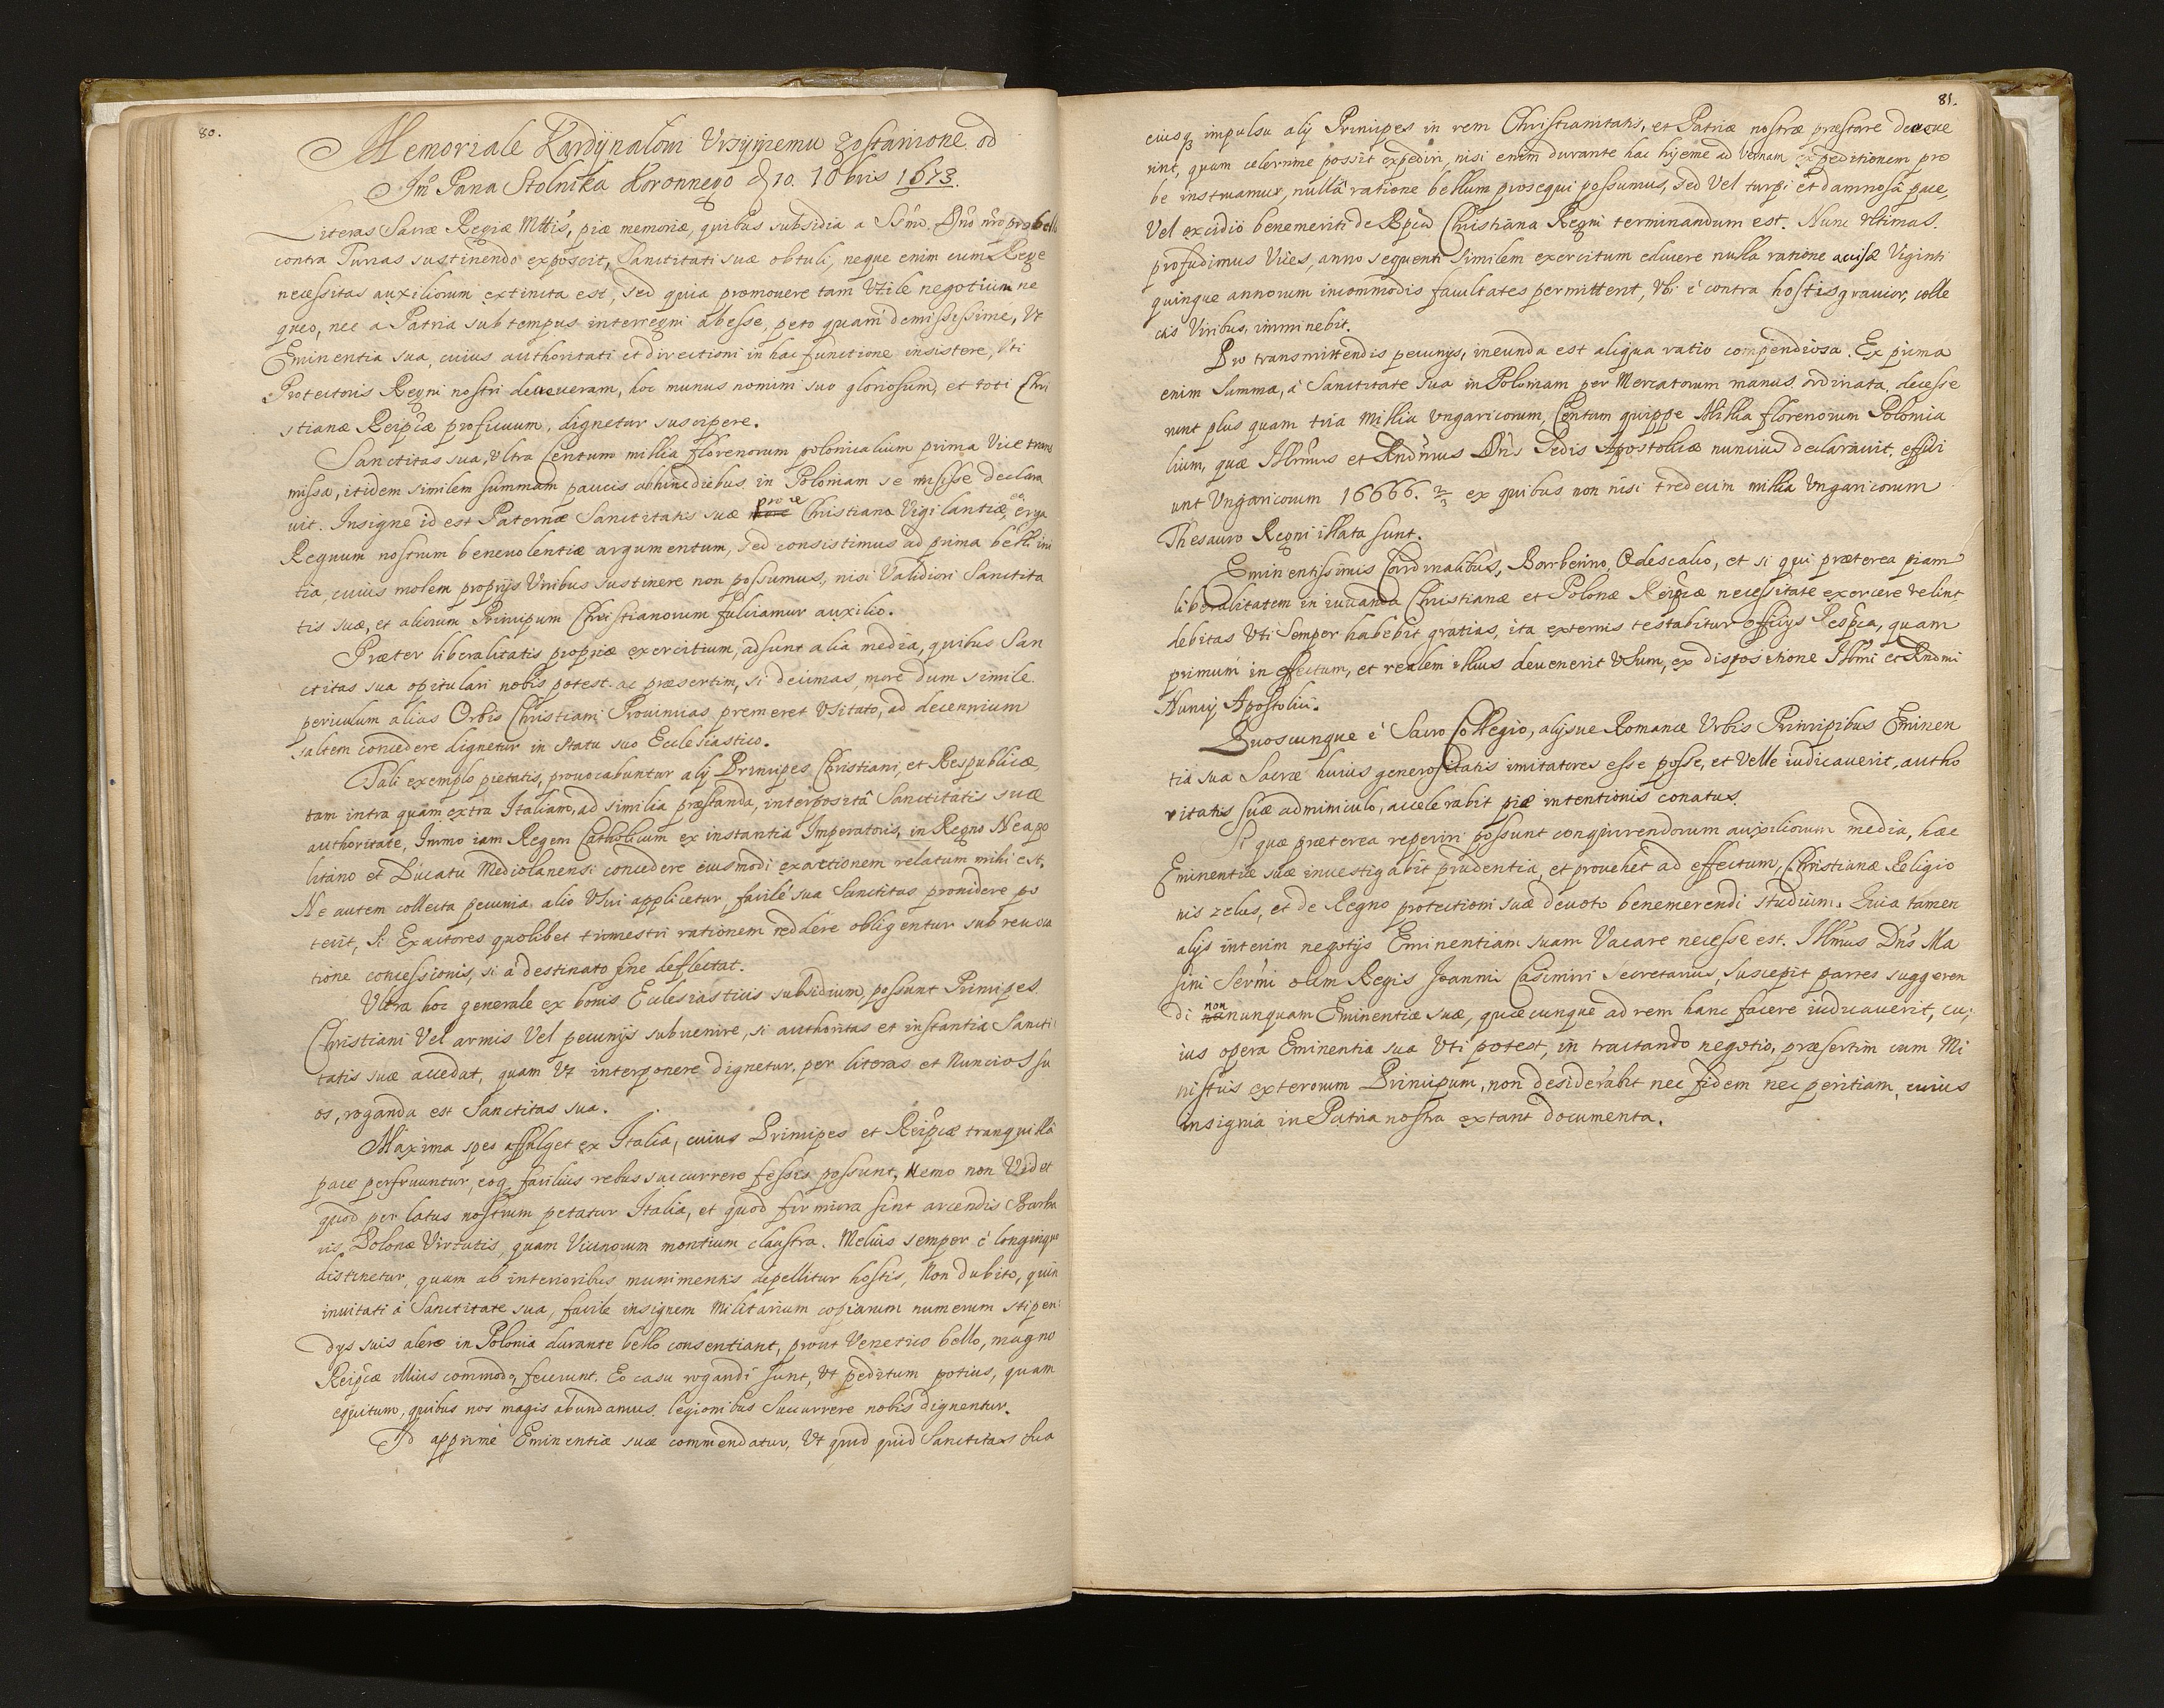 80.
Memoriale Kardynałowi Vrsyniemu zostawione od
Jm̃ Pana Stolnika Koronnego d 10. 10bris 1673.
Literas Sacræ Regiæ Mttis, piæ memoriæ, quibus subsidia a Ssmo Dno nro pro bello
contra Turcas sustinendo exposcit, Sanctitati suæ obtuli, neque enim cum Rege
necessitas auxiliorum extincta est, sed quia promouere tam Vtile negotium ne
queo, nec a Patria sub tempus interregni abesse, peto quam demississime, Vt
Eminentia sua, cuius authoritati et directioni in hac functione insistere, Vti
Protectoris Regni nostri decreueram, hoc munus nomini suo gloriosum, et toti Chri
stianæ Reipcæ proficuum, dignetur suscipere.
Sanctitas sua, Vltra Centum millia florenorum polonicalium prima Vice trans
missa, itidem similem summam paucis abhinc diebus in Poloniam se misisse declara
uit. Insigne id est Paternæ Sanctitatis suæ pro re Christiana Vigilantiæ, erga
Regnum nostrum beneuolentiæ argumentum, sed consistimus ad prima belli ini
tia, cuius molem proprijs Viribus sustinere non possumus, nisi Validiori Sanctita
tis suæ, et aliorum Principum Christianorum fulciamur auxilio.
Præter liberalitatis propriæ exercitium, adsunt alia media, quibus San
ctitas sua opitulari nobis potest. ac præsertim, si decimas, more dum simile
periculum alias Orbis Christiani Prouincias premeret Vsitato, ad decennium
saltem concedere dignetur in Statu suo Ecclesiastico.
Tali exemplo pietatis, prouocabuntur alij Principes Christiani, et Respublicæ,
tam intra quam extra Italiam, ad similia præstanda, interposità Sanctitatis suæ
authoritate, Immo iam Regem Catholicum ex instantia Imperatoris, in Regno Neapo
litano et Ducatu Mediolanensi concedere eiusmodi exactionem relatum mihi est.
Ne autem collecta pecunia alio Vsui applicetur, facilè sua Sanctitas prouidere po
terit, Si Exactores quolibet trimestri rationem reddere obligentur sub reuoca
tione concessionis, si à destinato fine deflectat.
Vltra hoc generale ex bonis Ecclesiasticis subsidium, possunt Principes
Christiani Vel armis Vel pecunijs subuenire, si authoritas et instantia Sancti
tatis suæ accedat, quam Vt interponere dignetur, per literas et Nuncios su
os, roganda est Sanctitas sua.
Maxima spes affulget ex Italia, cuius Principes et Reipcæ tranquillà
pace perfruuntur, eoq facilius rebus succurrere fessis possunt, Nemo non Videt
quod per latus nostrum petatur Italia, et quod firmiora sint arcendis Barba
ris Polonæ Virtutis, quam Vicinorum montium claustra. Melius semper è longinquo
distinetur, quam ab interioribus munimentis depellitur hostis, Non dubito, quin
inuitati à Sanctitate sua, facile insignem Militarium copiarum numerum stipen
dys suis alere in Polonia durante bello consentiant, prout Veneto bello, magno
Reipcæ illius commodo, fecerunt. Eo casu rogandi sunt, Vt peditum potius, quam
equitum, quibus nos magis abundamus, legionibus Succurrere nobis dignentur.
Id apprimè Eminentiæ suæ commendatur, Vt quid quid Sanctitas sua
81.
eiusq impulsu alij Principes in rem Christianitatis, et Patriæ nostræ præstare decreue
rint, quam celerrime possit expediri, nisi enim durante hac hijeme ad Vernam expeditionem pro
be instruamur, nullà ratione bellum prosequi possumus, sed Vel turpi et damnosâ pace,
Vel excidio benemeriti de Rpca Christiana Regni terminandum est. Nunc Vltimas
profudimus Vires, anno sequenti similem exercitum educere nulla ratione accisæ Viginti
quinque annorum incommodis facultates permittent, Vbi è contra hostis grauior, colle
ctis Viribus, imminebit.
Pro transmittendis pecunijs, ineunda est aliqua ratio compendiosa. Ex prima
enim Summa, à Sanctitate sua in Poloniam per Mercatorum manus ordinata, decesse
runt plus quam tria Millia Vngaricorum, Centum quippe Millia florenorum Polonica
lium, quæ Illmus et Rndmus Dns Sedis Apostolicæ nuncius declarauit, effici
unt Vngaricorum 16666. 2/3 ex quibus non nisi tredecim millia Vngaricorum
Thesauro Regni illata sunt.
Eminentissimis Cardinalibus, Barberino, Odescalco, et si qui præterea piam
liberalitatem in iuuanda Christianæ et Polonæ Reipcæ necessitate exercere velint
debitas Vti Semper habebit gratias, ita externis testabitur officijs Respca, quam
primum in effectum, et realem illius deuenerit Vsum, ex dispositione Illmi et Rndmi
Nuncij Apostolici.
Quoscunque è Sacro Collegio, alijsue Romanæ Vrbis Principibus Eminen
tia sua Sacræ huius generositatis imitatores esse posse, et Velle iudicauerit, autho
ritatis suæ adminiculo, accelerabit piæ intentionis conatus.
Si quæ præterea reperiri possunt conquirendorum auxiliorum media, hæc
Eminentiæ suæ inuestigabit prudentia, et prouehet ad effectum, Christianæ Religio
nis zelus, et de Regno protectioni suæ deuoto benemerendi studium. Quia tamen
alijs interim negotijs Eminentiam suam Vacare necesse est. Illmus Dns Ma
sini Sermi olim Regis Joannis Casimiri Secretarius, suscepit partes suggeren
di non nunquam Eminentiæ suæ, quæcunque ad rem hanc facere iudicauerit, cu;
ius opera Eminentia sua Vti potest, in tractando negotio, præsertim cum Mi
nistris exterorum Principum, non desiderabit nec fidem nec peritiam, cuius
insignia in Patria nostra extant documenta.